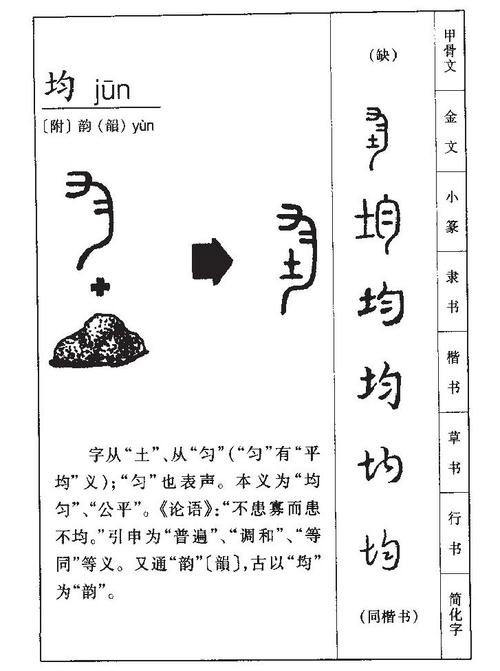 均 jūn
〔附〕韵（韻）yùn
字从“土”、从“匀”（“匀”有“平
均”义）；“匀”也表声。本义为“均
匀”、“公平”。《论语》：“不患寡而患
不均。”引申为“普遍”、“调和”、“等
同”等义。又通“韵”〔韻〕，古以“均”
为“韵”。
（缺）
甲骨文
均
金文
均
小篆
均
隶书
均
楷书
均
草书
均
行书
（同楷书）
简化字